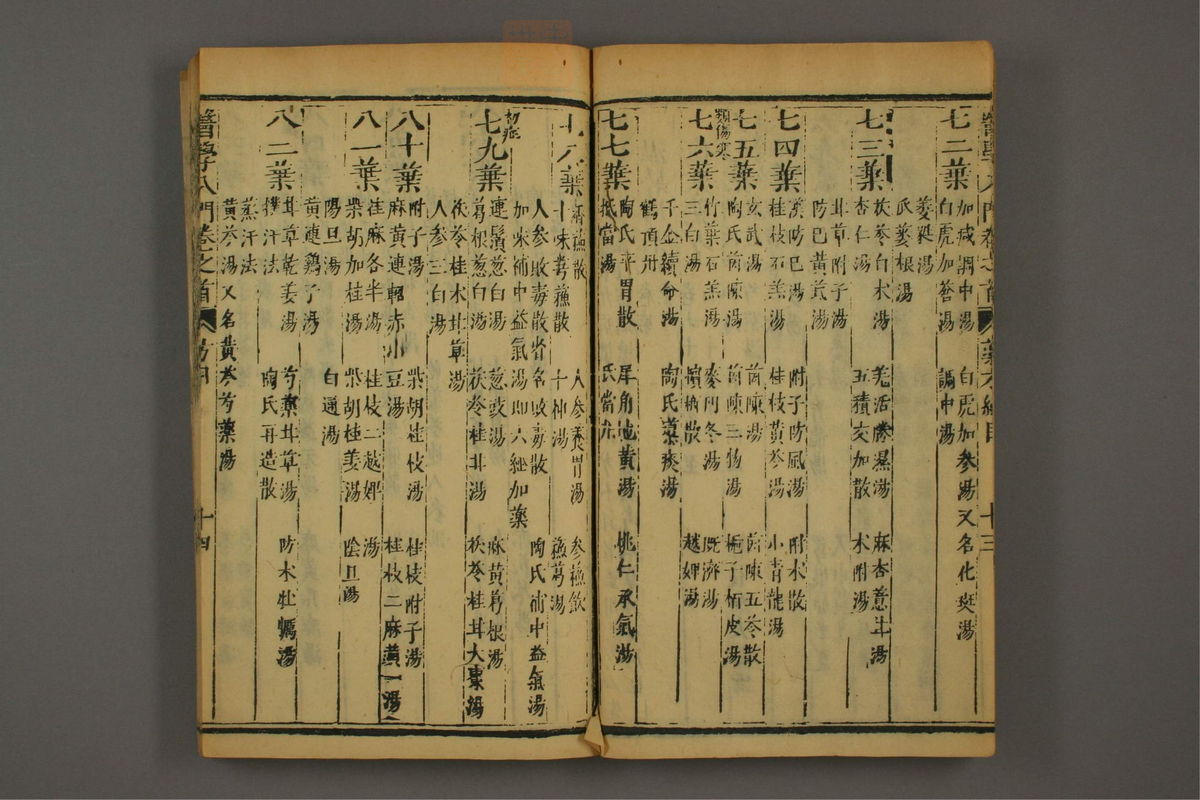 醫學入門卷之首 藥方總目 十三
七二葉 加減調中湯 白虎加參湯又名化斑湯
白虎加蒼湯 調中湯
菱渠湯
瓜蔞根湯
七三葉 茯苓白朮湯 羌活勝濕湯 麻杏薏苡湯
杏仁湯 五積交加散 朮附湯
甘草附子湯
防已黃芪湯
七四葉 漢防已湯 附子防風湯 附朮散
桂枝石羔湯 桂枝黃芩湯 小青龍湯
七五葉 玄武湯 茵陳湯 茵陳五苓散
陶氏茵陳湯 茵陳三物湯 梔子柏皮湯
類傷寒
七六葉 竹葉石羔湯 麥門冬湯 既濟湯
三白湯 檳柄散 越婢湯
千金續命湯 陶氏導痰湯
鶴頂丹
七七葉 陶氏平胃散 犀角地黃湯 桃仁承氣湯
抵當湯 氐當丸
七八葉 薷蘓散 人參養胃湯 參蘓飲
十味芎蘓散 十神湯 蘓葛湯
人參敗毒散省名敗毒散 陶氏補中益氣湯
加味補中益氣湯即六經加藥
初症
七九葉 連鬚葱白湯 葱豉湯 麻黃葛根湯
葛根葱白湯 茯苓桂甘湯 茯苓桂甘大棗湯
茯苓桂朮甘草湯
人參三白湯
八十葉 附子湯 柴胡桂枝湯 桂枝附子湯
麻黃連軺赤小豆湯 桂枝二麻黃一湯
八一葉 桂麻各半湯 桂枝二越婢一湯
柴胡加桂湯 柴胡桂姜湯 陰旦湯
陽旦湯 白通湯
黃連鷄子湯
八二葉 甘草乾姜湯 芍藥甘草湯 防朮牡蠣湯
撲汗法 陶氏再造散
蒸汗法
黃芩湯又名黃芩芍藥湯
醫學入門卷之首 十四